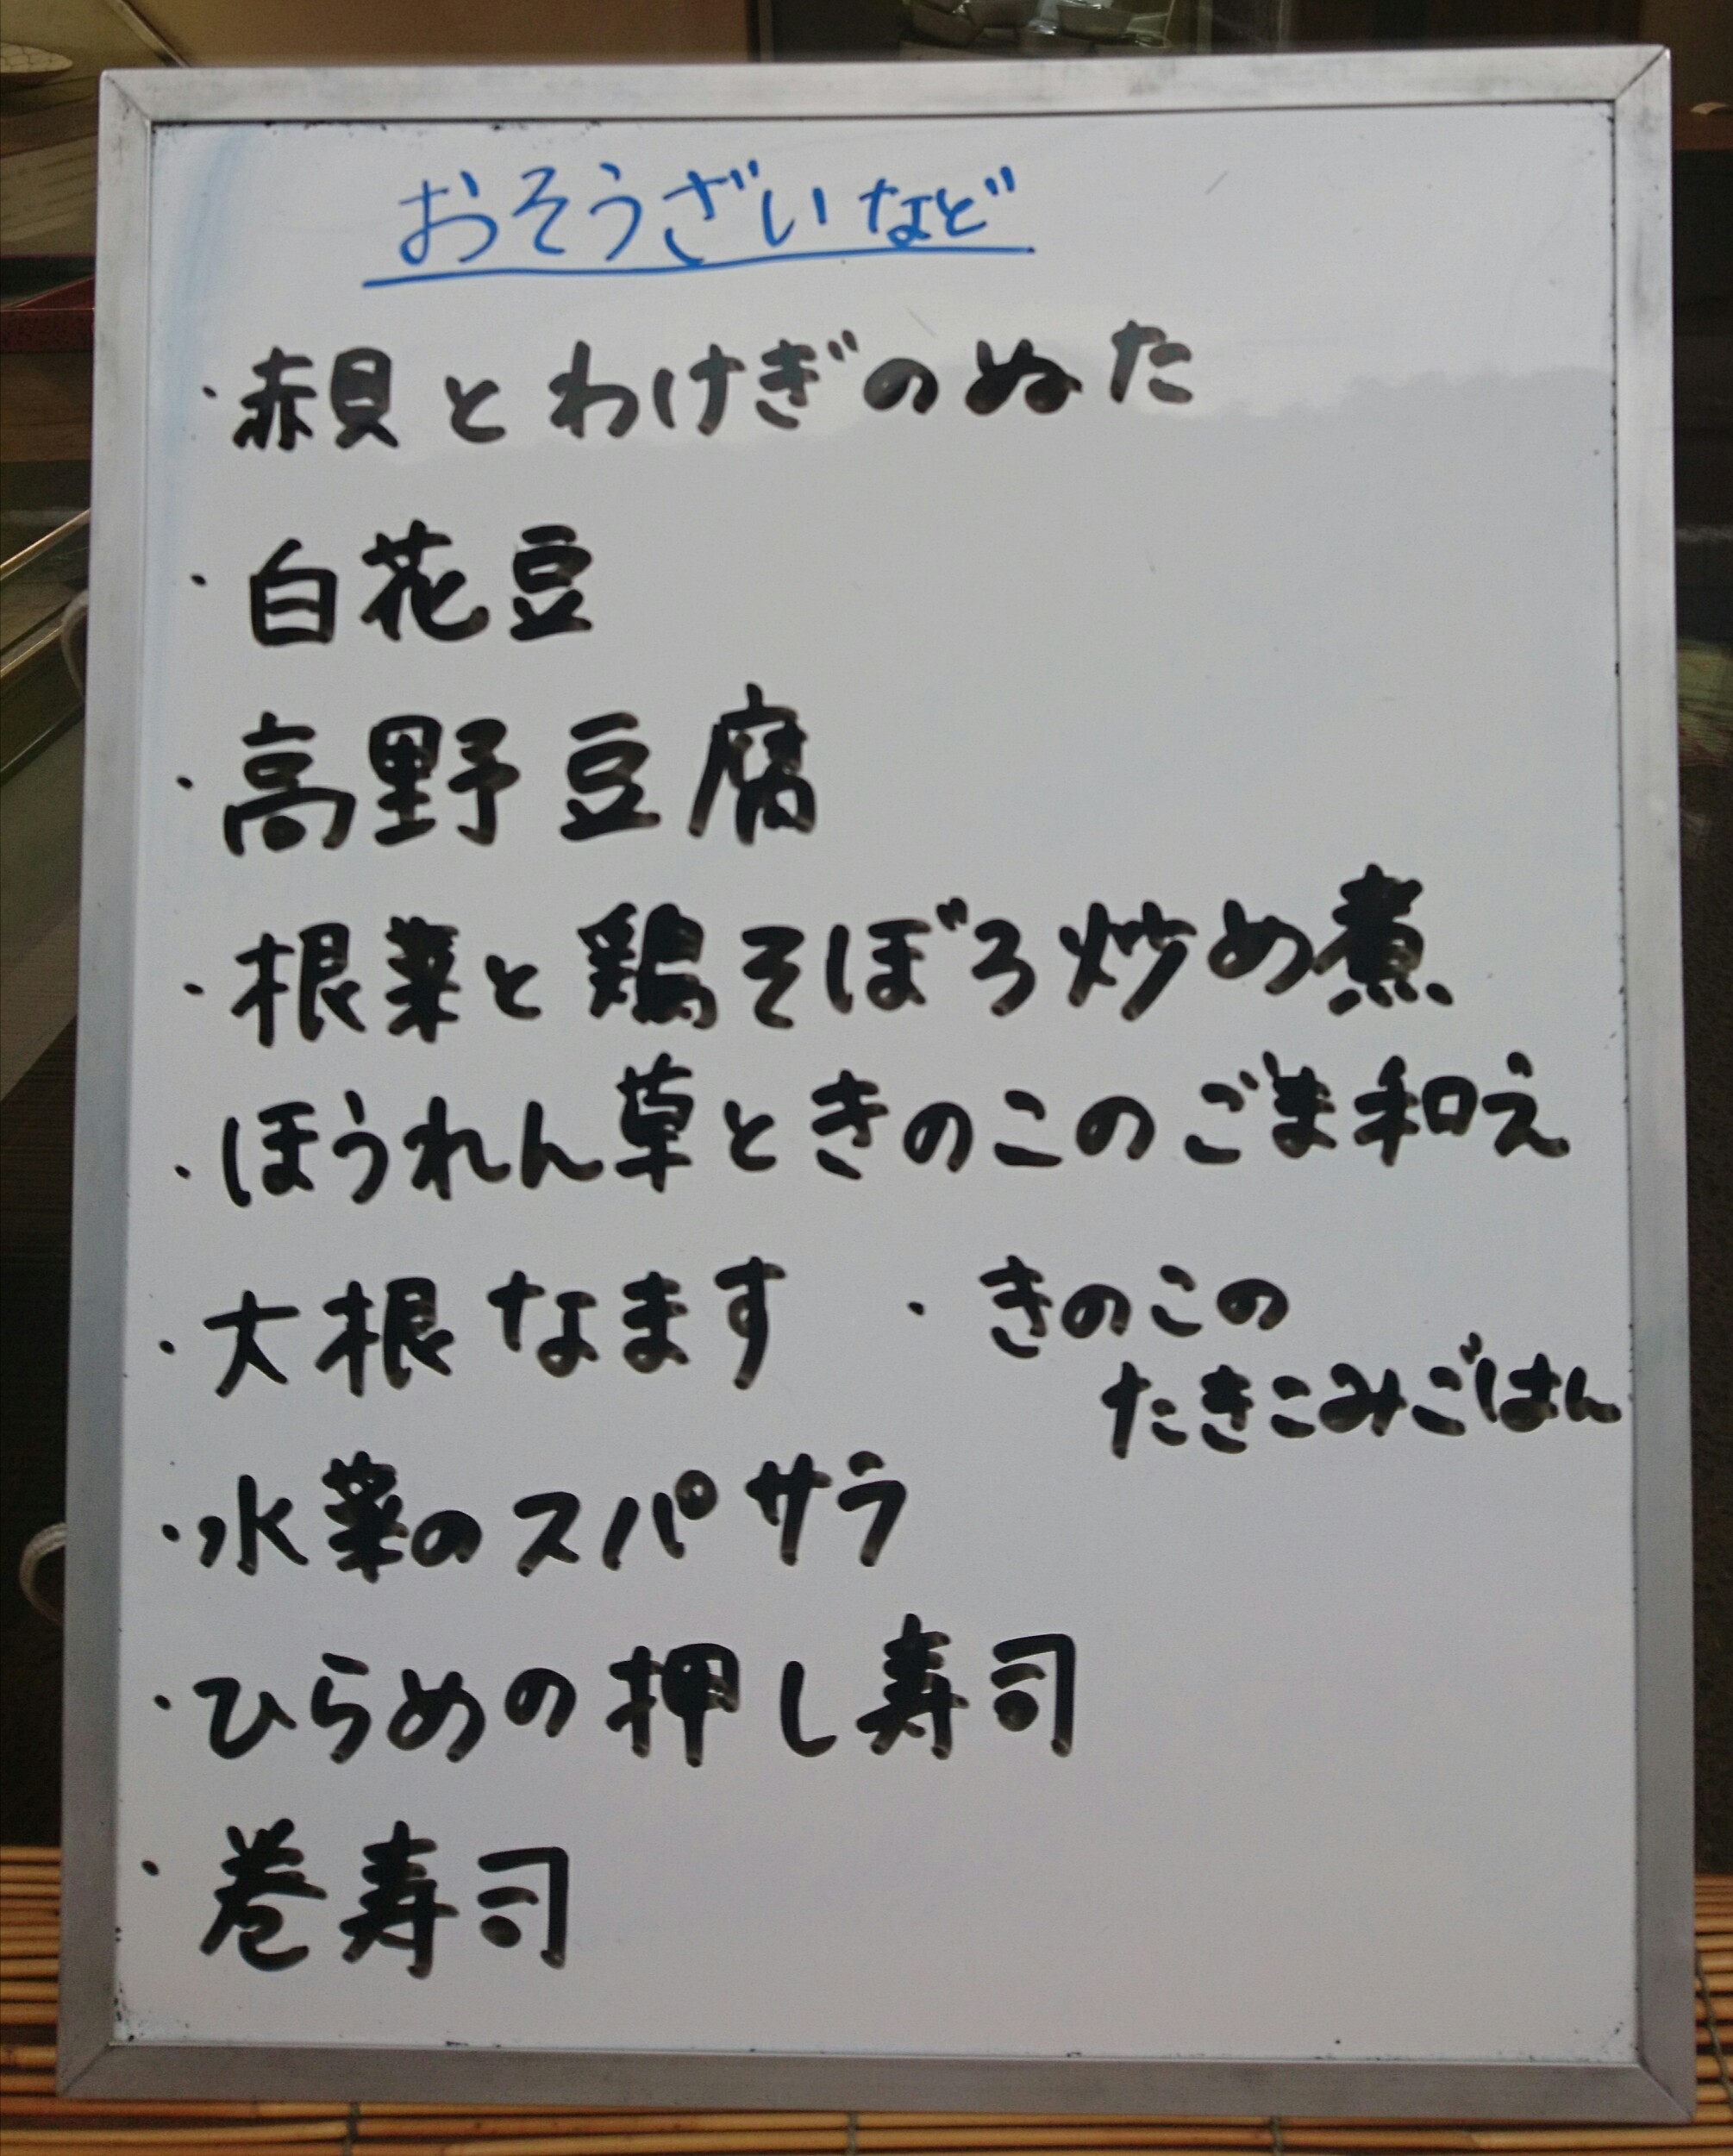 おそうざいなど
・赤貝とわけぎのぬた
・白花豆
・高野豆腐
・根菜と鶏そぼろ炒め煮
・ほうれん草ときのこのごま和え
・大根なます
・きのこの
たきこみごはん
・水菜のスパサラ
・ひらめの押し寿司
・巻寿司